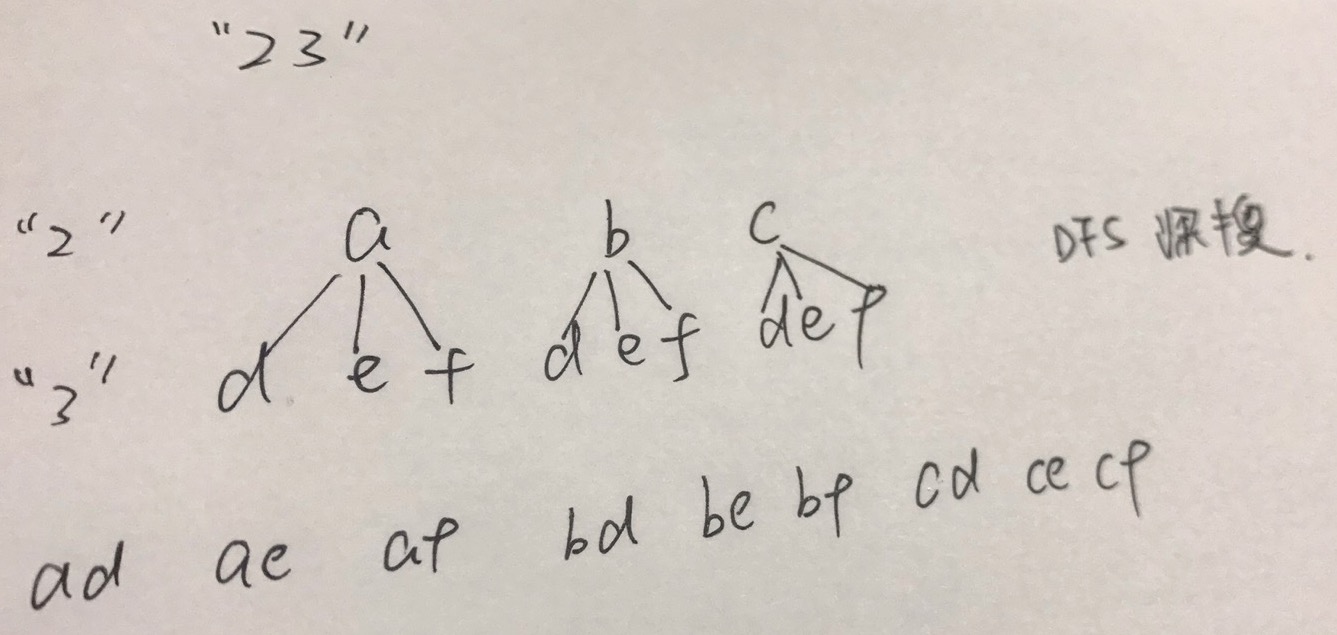 "23"
"2" a b c DFS 深搜.
"3" d e f d e f d e f
ad ae af bd be bf cd ce cf